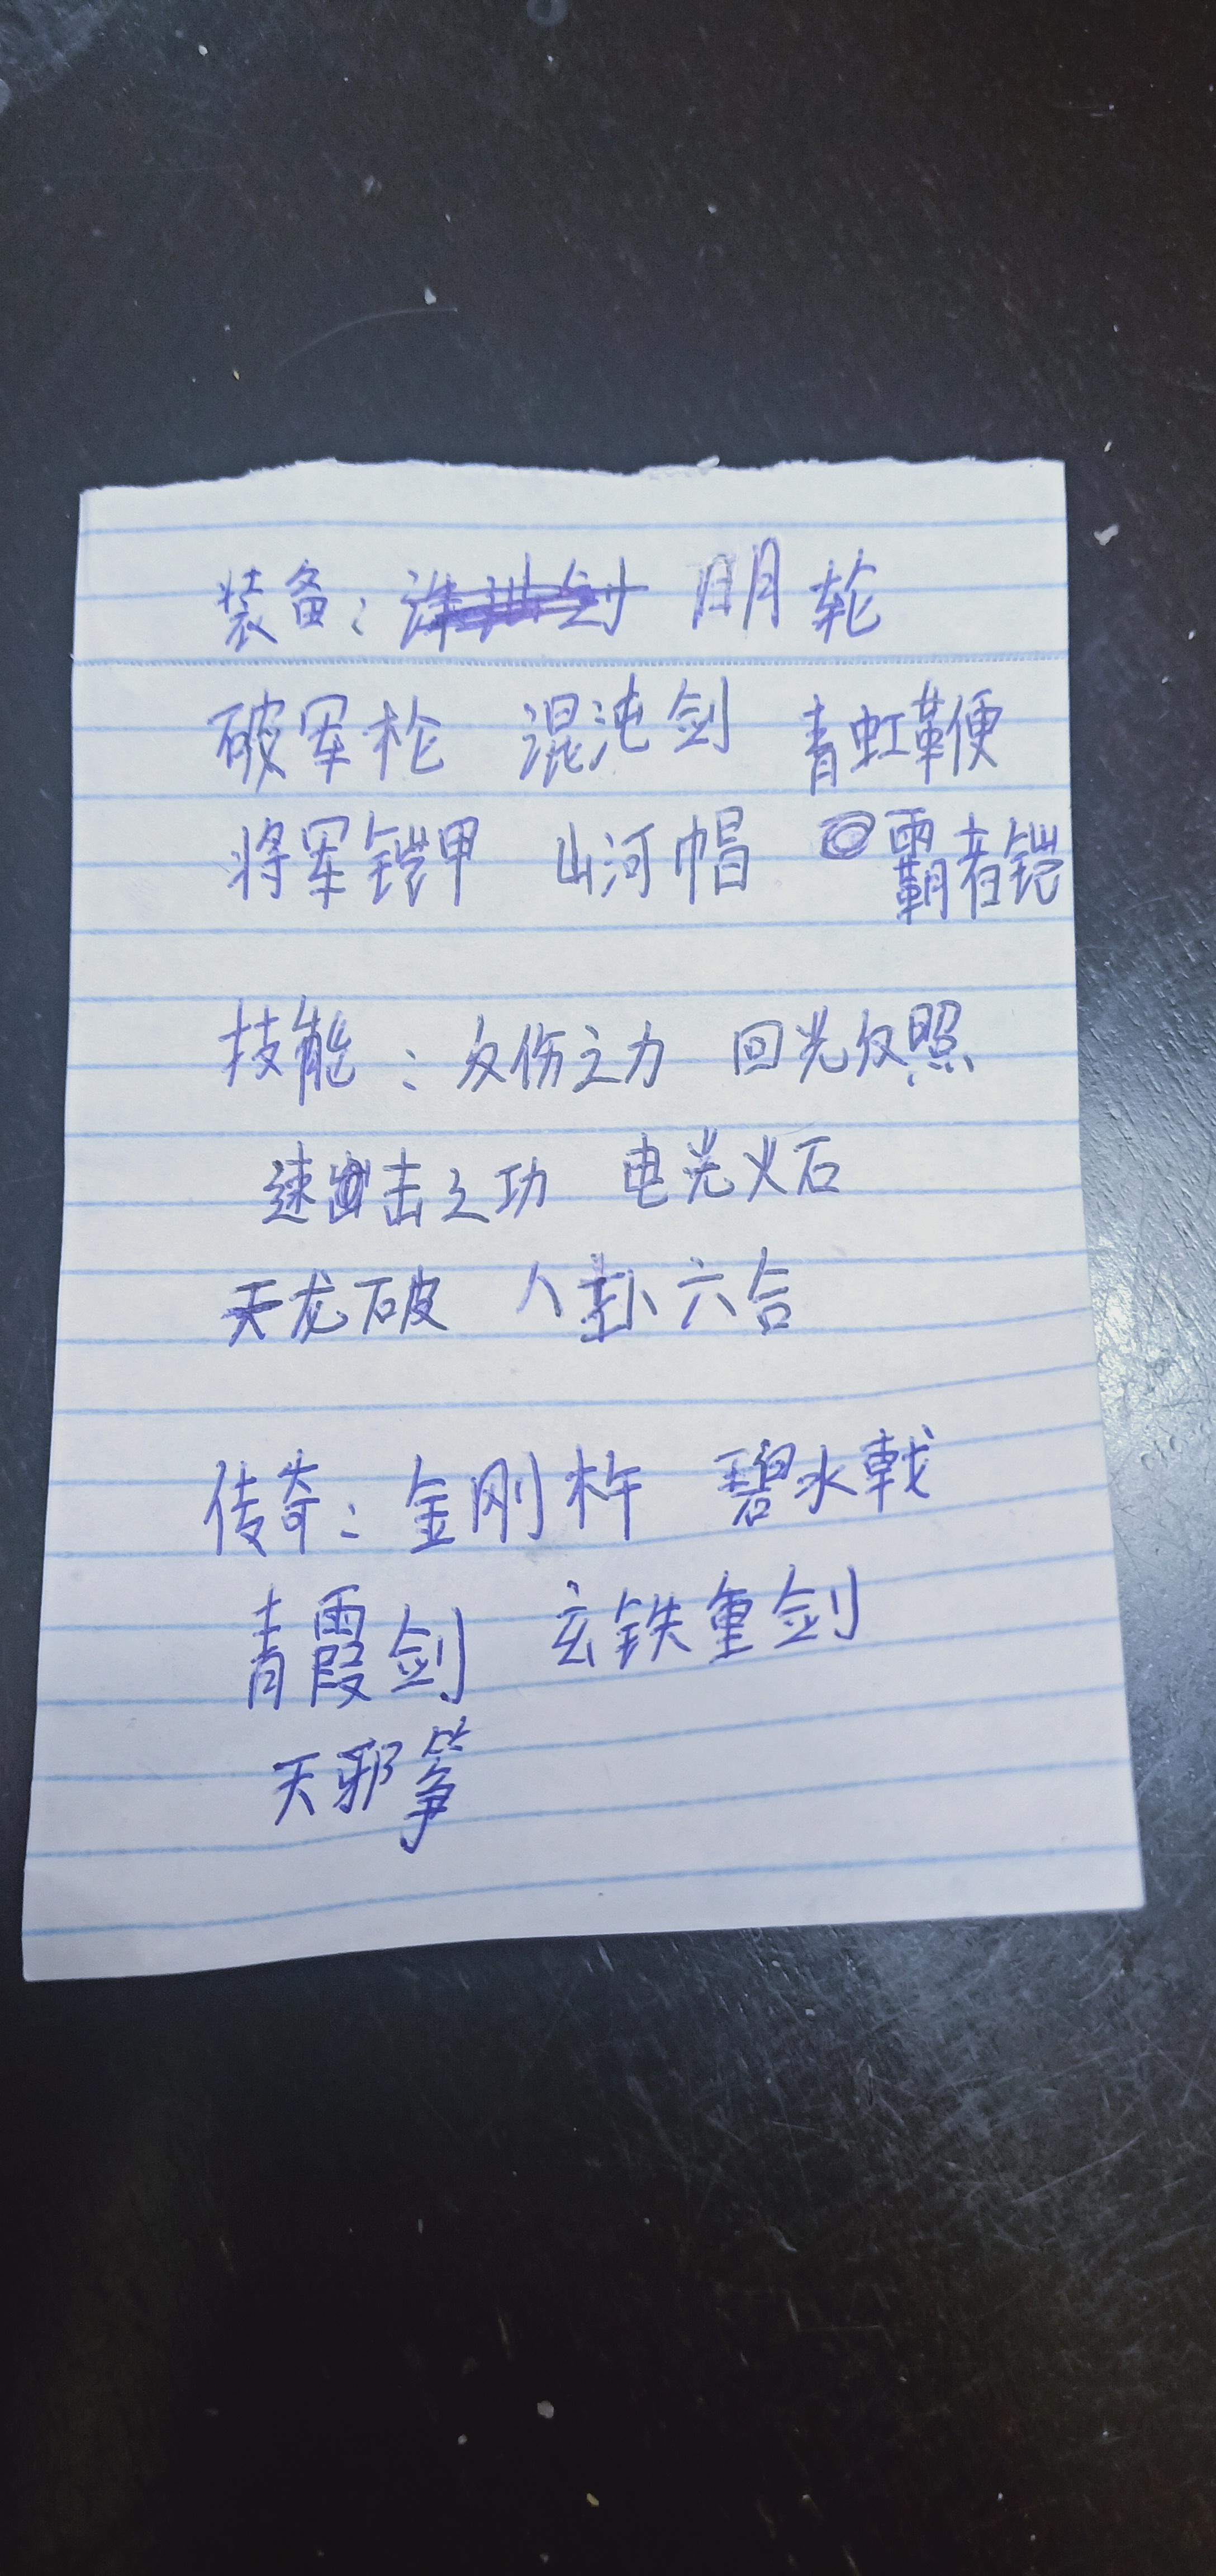 装备: 日月轮
破军枪 混沌剑 青虹鞭
将军铠甲 山河帽 霸者铠
技能: 反伤之力 回光反照
速击之功 电光火石
天龙破 八卦六合
传奇: 金刚杵 碧水戟
青霞剑 玄铁重剑
天邪筝